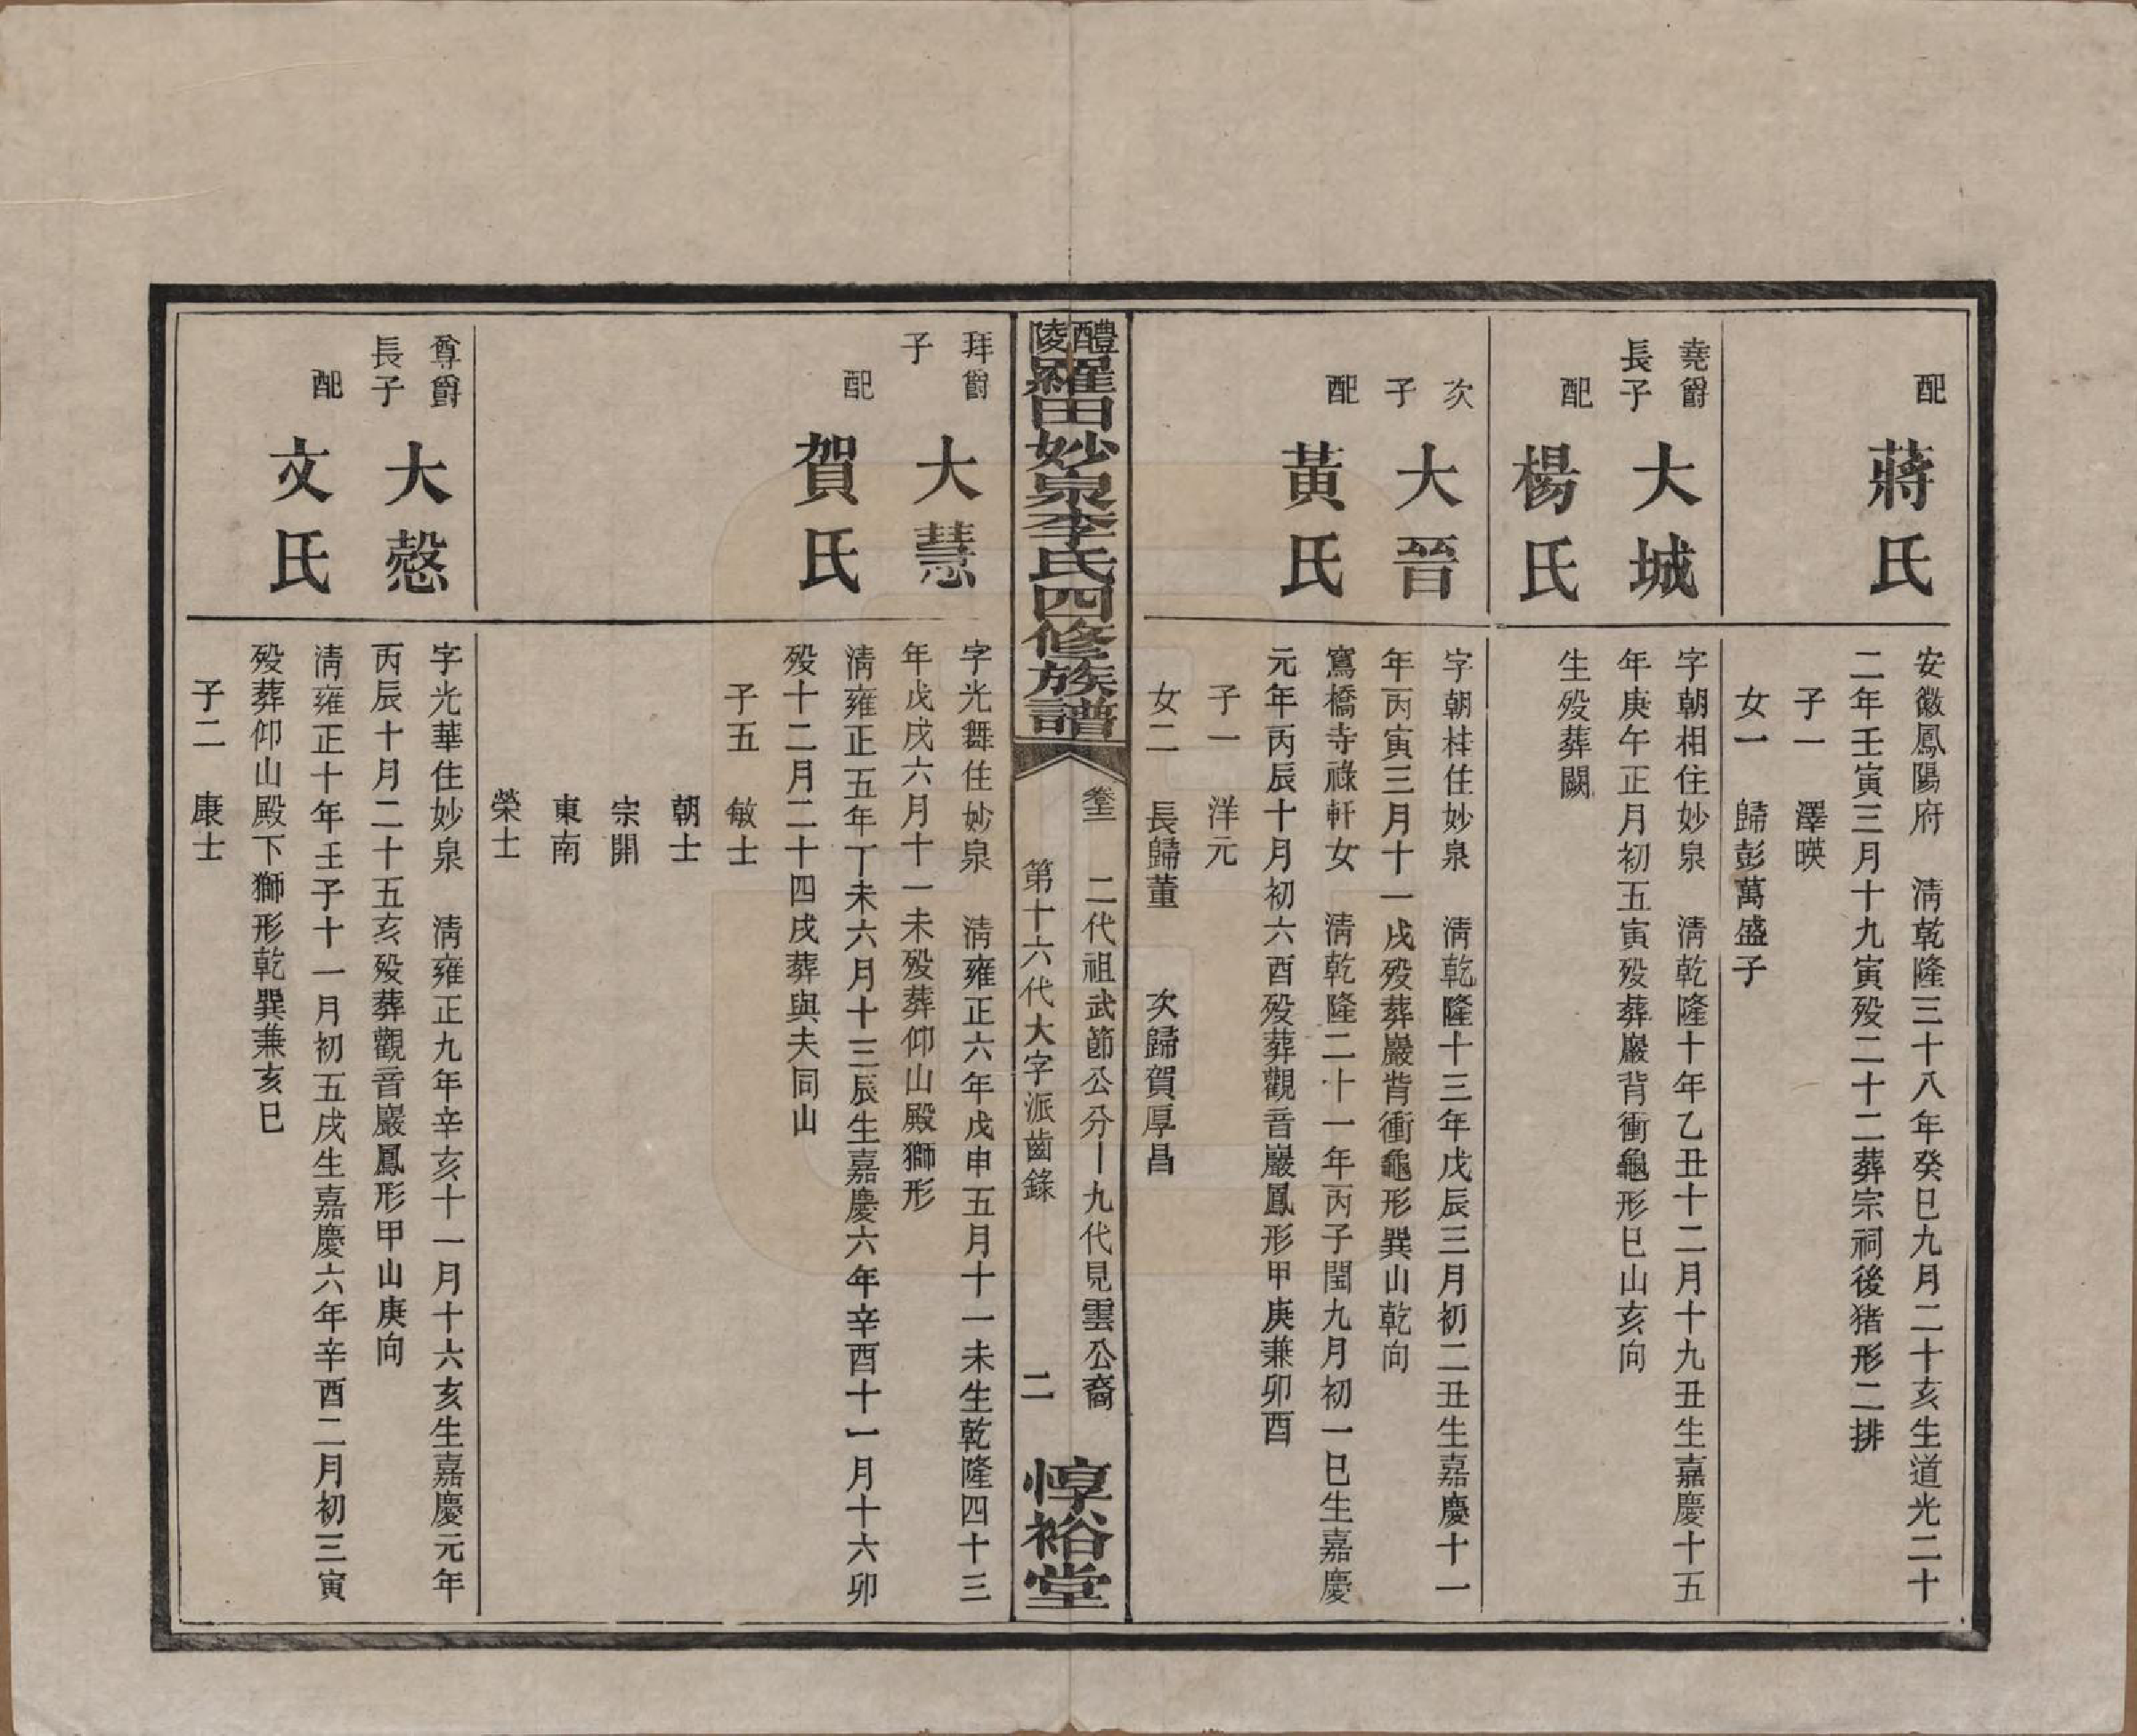 配
蔣氏
安徽鳳陽府　淸乾隆三十八年癸巳九月二十亥生道光二十
二年壬寅三月十九寅殁二十二葬宗祠後猪形二排
子一　澤暎
女一　歸彭萬盛子
堯爵
長子
大城
字朝相住妙泉　淸乾隆十年乙丑十二月十九丑生嘉慶十五
年庚午正月初五寅殁葬巖背衝龜形巳山亥向
配
楊氏
生殁葬闕
次
子
大晉
字朝桂住妙泉　淸乾隆十三年戊辰三月初二丑生嘉慶十一
年丙寅三月十一戌殁葬巖背衝龜形巽山乾向
配
黃氏
寫橋寺祿軒女　淸乾隆二十一年丙子閏九月初一巳生嘉慶
元年丙辰十月初六酉殁葬觀音巖鳳形甲庚兼卯酉
子一　洋元
女二　長歸董　次歸賀厚昌
醴陵羅田妙泉李氏四修族譜
二代祖武節公分一九代見雲公裔
第十六代大字派齒錄
二
惇裕堂
拜爵
子
大慧
字光舞住妙泉　淸雍正六年戊申五月十一未生乾隆四十三
年戊戌六月十一未殁葬仰山殿獅形
配
賀氏
淸雍正五年丁未六月十三辰生嘉慶六年辛酉十一月十六卯
殁十二月二十四戌葬與夫同山
子五　敏士
朝士
宗開
東南
榮士
尊爵
長子
大慤
字光華住妙泉　淸雍正九年辛亥十一月十六亥生嘉慶元年
丙辰十月二十五亥殁葬觀音巖鳳形甲山庚向
配
文氏
淸雍正十年壬子十一月初五戌生嘉慶六年辛酉二月初三寅
殁葬仰山殿下獅形乾巽兼亥巳
子二　康士